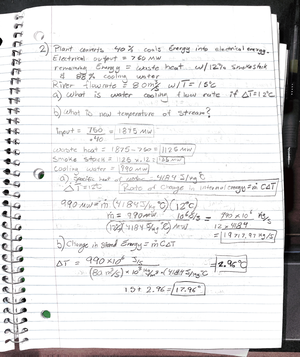 2) Plant converts 40% coals Energy into electrical energy.
Electrical output = 760 MW
remaining Energy = waste heat w/12% smokestack
& 88% cooling water
River flowrate = 80 m³/s w/T = 15°C
a) What is water cooling flow rate if ΔT=12°C
b) What is new temperature of stream?
input = 750/.40 = 1875 MW
Waste heat = 1875-750 = 1125 MW
Smoke stack = 1125 x .12 =
Cooling water = 990 MW
a) Specific heat of water 4184 J/kg°C
ΔT=12°C Rate of change in internal energy = ṁ CΔT
990 MW = ṁ (4184 J/kg°C)(12°C)
ṁ = 990 MW 10⁶ J/s = 990 x 10⁶ kg/s
(12)(4184 J/kg°C) MW 12 x 4184
b) Change in Stored Energy = ṁ CΔT
ΔT = 990 x10⁶ J/s = 2.96°C
(80 m³/s) x 10³ kg/m³ x (4184 J/kg°C
15 + 2.96 = 17.96°